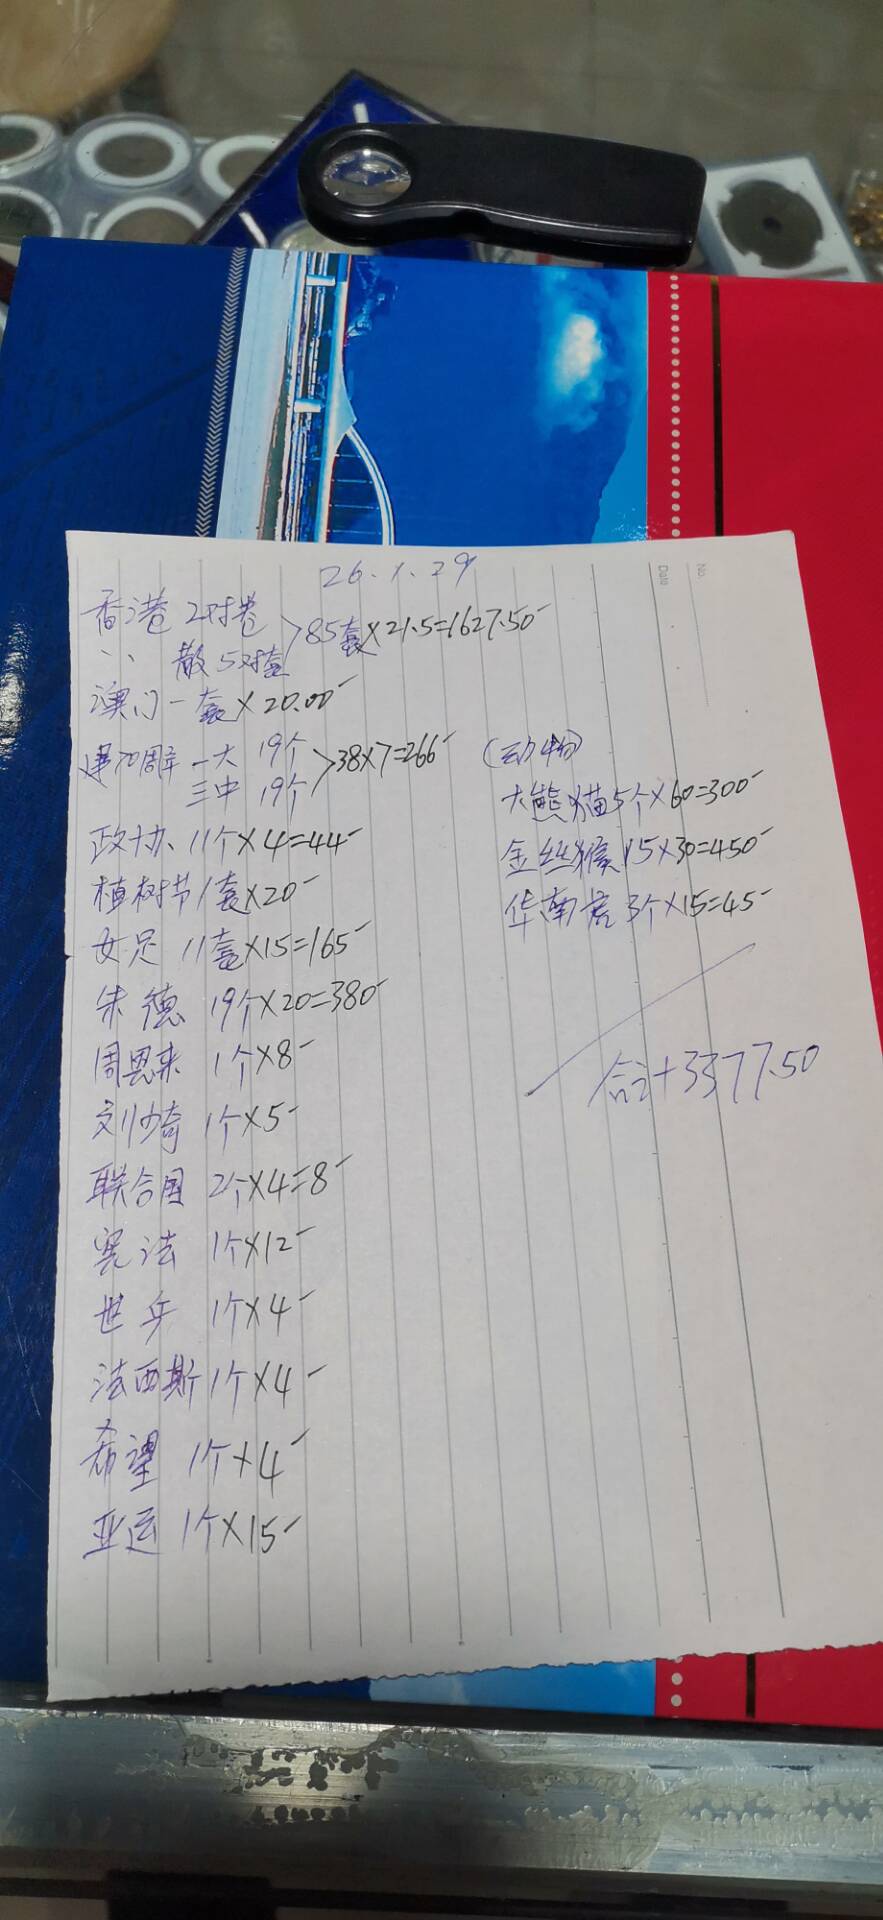 No.
Date
26.1.29
香港 2对卷
〃 散 5对套 > 85套×21.5=1627.50-
澳门一套×20.00-
建70周年 一大 19个
三中 19个 > 38×7=266-
政协 11个×4=44-
植树节1套×20-
女足 11套×15=165-
朱德 19个×20=380-
周恩来 1个×8-
刘少奇 1个×5-
联合国 2个×4=8-
宪法 1个×12-
世乒 1个×4-
法西斯1个×4-
希望 1个×4-
亚运 1个×15-
(动物)
大熊猫5个×60=300-
金丝猴15×30=450-
华南虎 3个×15=45-
合计3377.50